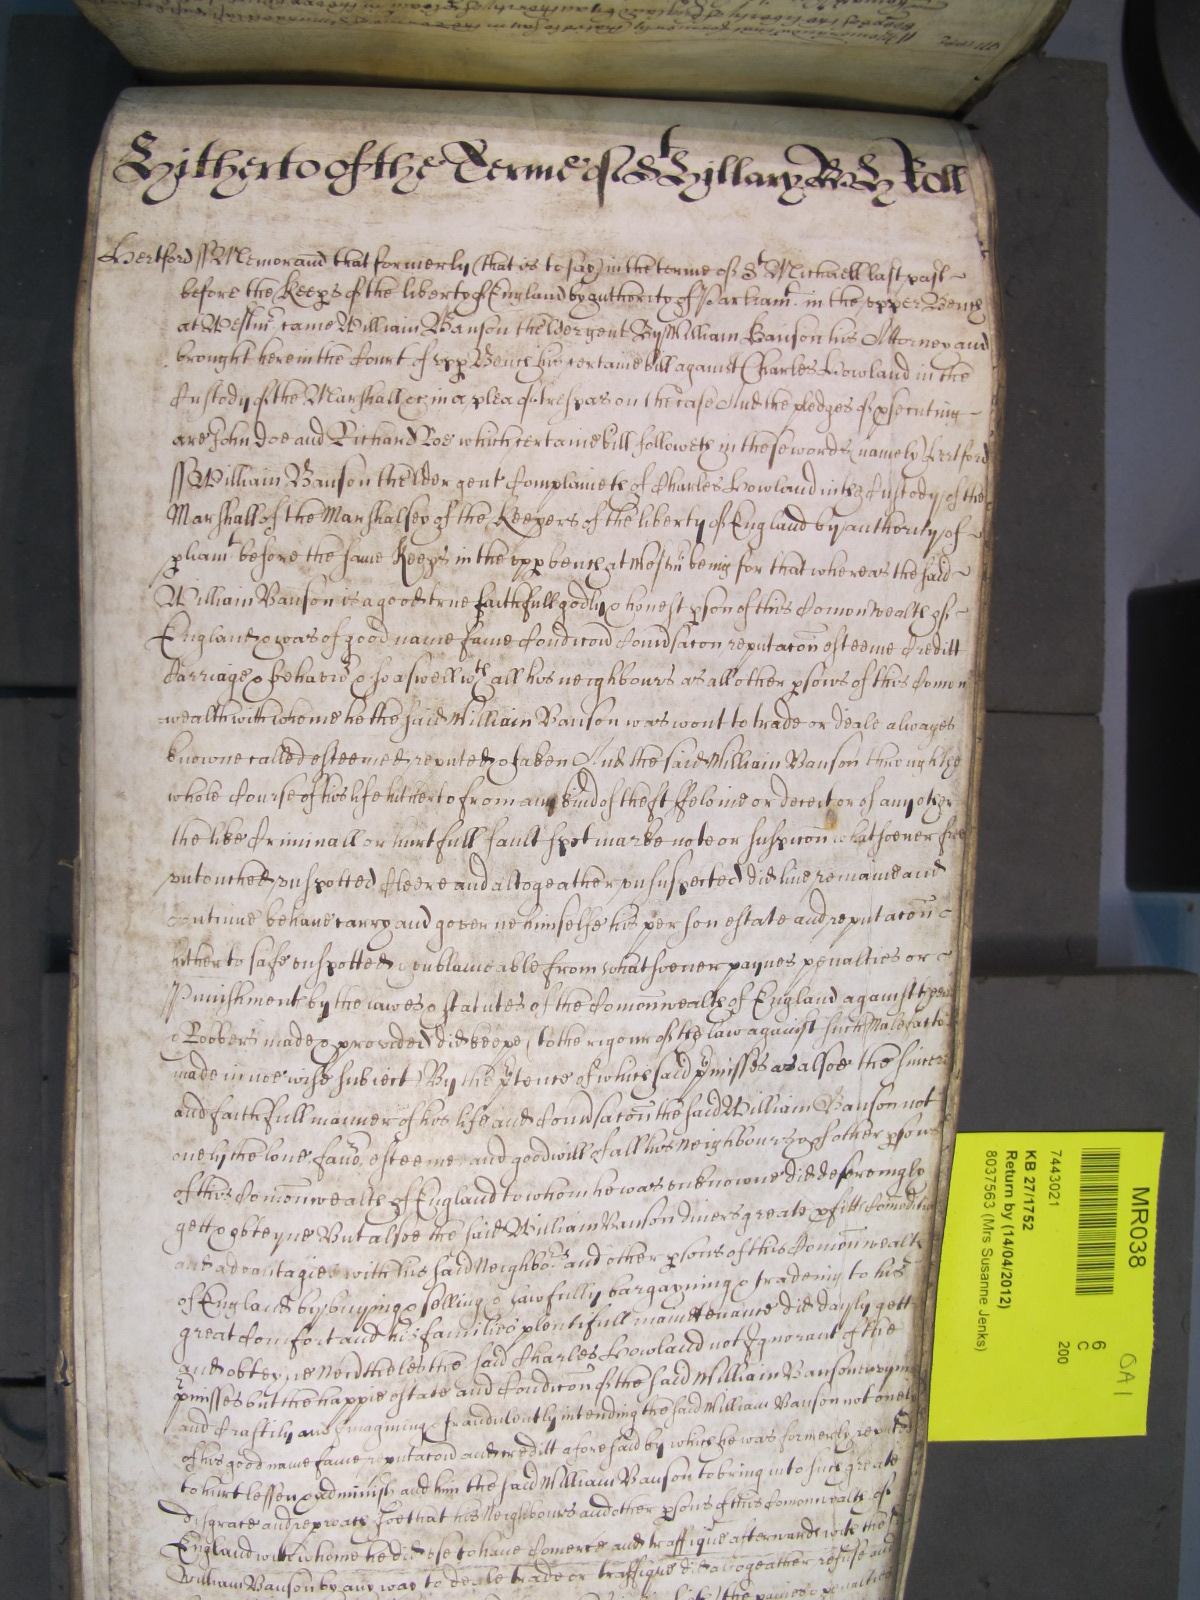 Hitherto of the Terme of St Hillary
Roll
Hertford ss Memorand that formerly (that is to say) in the terme of St Michaell last past
before the Keeps of the liberty of England by authority of Parliamt in the upper Bench
at Westmr came William Vanson thelder gent By William Vanson his Attorney and
brought here in the Court of upp Bench his certaine bill against Charles Howland in the
Custody of the Marshall &c in a plea of trespas on the case And the pledges of psecuting
are John Doe and Richard Roe which certaine bill followeth in these words namely Hertford
ss William Vanson thelder gent Complaineth of Charles Howland in the Custody of the
Marshall of the Marshalsey of the Keepers of the liberty of England by authority of
pliamt before the same Keeps in the upp bench at Westmr being for that whereas the said
William Vanson is a good true faithfull godly & honest pson of this Comon wealth of
England & was of good name fame Condicon Convsacon reputacon esteeme Creditt
Carriage & behavior & soe aswell wth all his neighbours as all other psons of this Comon
wealth with whome he the said William Vanson was wont to trade or deale alwayes
knowne called esteemed reputed & taken And the said William Vanson through the
whole Course of his life hitherto from any kind of theft ffelonie or deceit or of any other
the like Criminall or hurtfull fault spot marke note or suspicon whatsoever free
untouched unspotted Cleere and altogeather unsuspected did live remaine and
continue behave carry and governe himselfe his person estate and reputacon
hitherto safe unspotted & unblameable from whatsoever paynes penalties or
Punishment by the lawes & statutes of the Comonwealth of England against
& Robbers made & provided did keepe (to the rigour of the law against such Malefactors
made in noe wise subject) By the ptence of which said pmisses as alsoe the sincere
and faithfull manner of his life and Convsacon the said William Vanson not
onely the love favor esteeme and goodwill of all his Neighbours & of other psons
of this Comonwealth of England to whom he was unknowne did deservingly
gett & obteyne But alsoe the said William Vanson divers greate pfitts Comodities
and advantagies with his said Neighbors and other psons of this Comonwealth
of England by buying & selling & lawfully bargayning & tradeing to his
great Comfort and his families plentifull maintenance did dayly gett
and obteyne Nevertheles the said Charles Howland not Ignorant of the
pmisses but the happie estate and Condicon of the said William Vanson envying
and Craftily and Imagining & fraudulently intending the said William Vanson not onely
of his good name fame reputacon and creditt aforesaid by which he was formerly reputed
to hurt lessen & diminish and him the said William Vanson to bring into such greate
disgrace and reproach soe that his Neighbours and other psons of this Comonwealth of
England with whome he did use to have Comerce and traffique afterwards with the
William Vanson by any way to deale trade or traffique did altogeather refuse and
the paines & penalties
MR038
7443021
KB 27/1752
Return by (14/04/2012)
8037563 (Mrs Susanne Jenks)
6
C
200
OA1